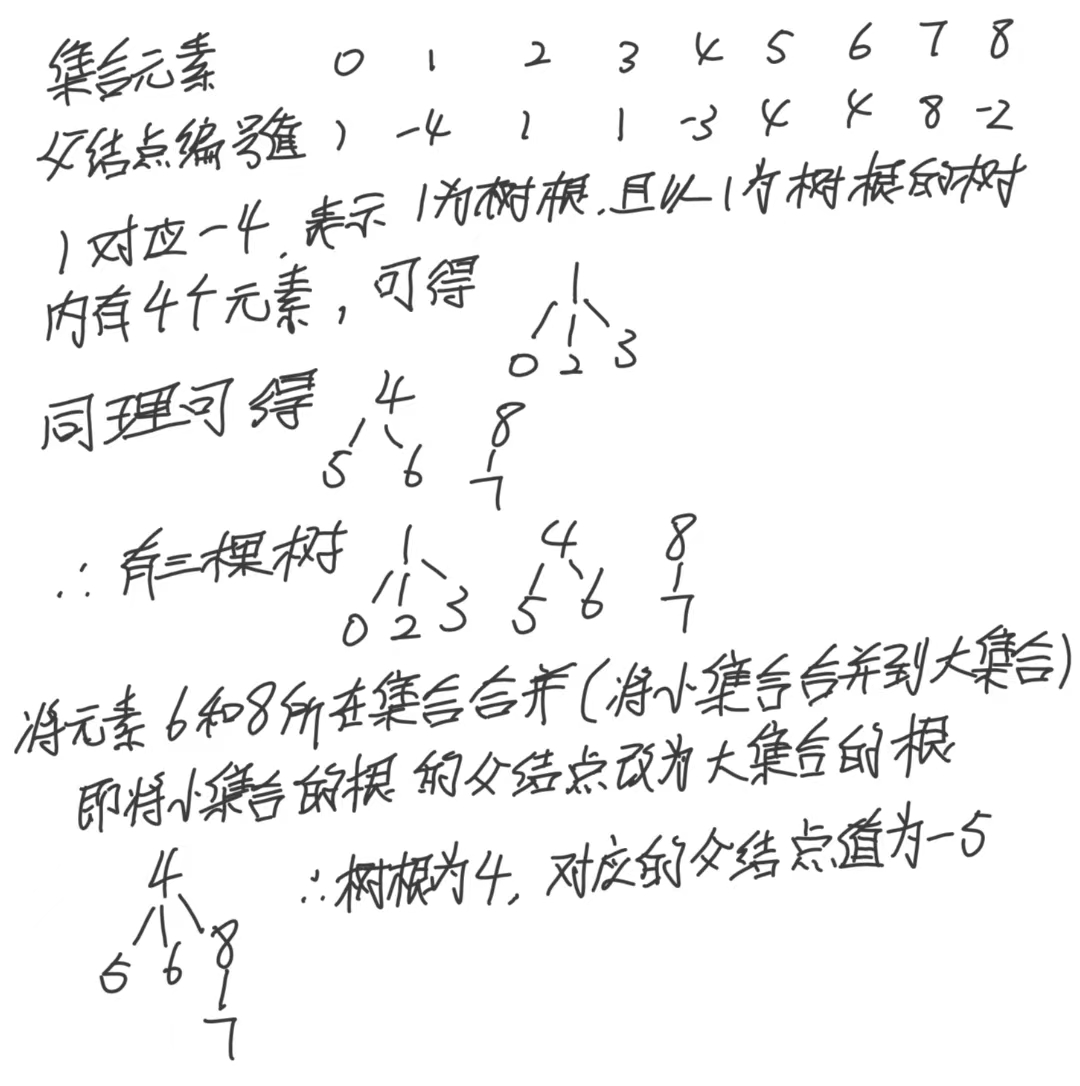 集合元素 0 1 2 3 4 5 6 7 8
父结点编号值 1 -4 1 1 -3 4 4 8 -2
1对应-4,表示1为树根,且以1为树根的树
内有4个元素,可得
1
0 2 3
同理可得
4
5 6
8
7
∴有三棵树
1
0 2 3
4
5 6
8
7
将元素6和8所在集合合并(将小集合合并到大集合)
即将小集合的根的父结点改为大集合的根
4
5 6 8
7
∴树根为4,对应的父结点值为-5